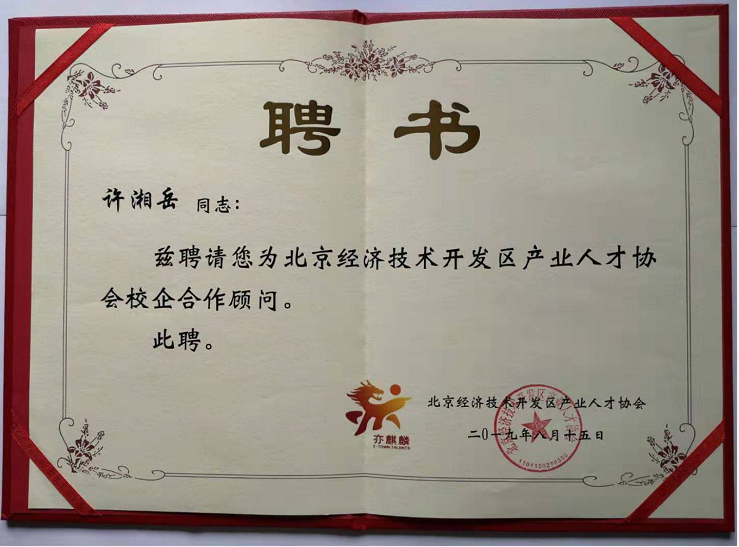 聘书
许湘岳 同志：
兹聘请您为北京经济技术开发区产业人才协
会校企合作顾问。
此聘。
亦麒麟
E-TOWN TALENTS
北京经济技术开发区产业人才协会
二〇一九年八月十五日